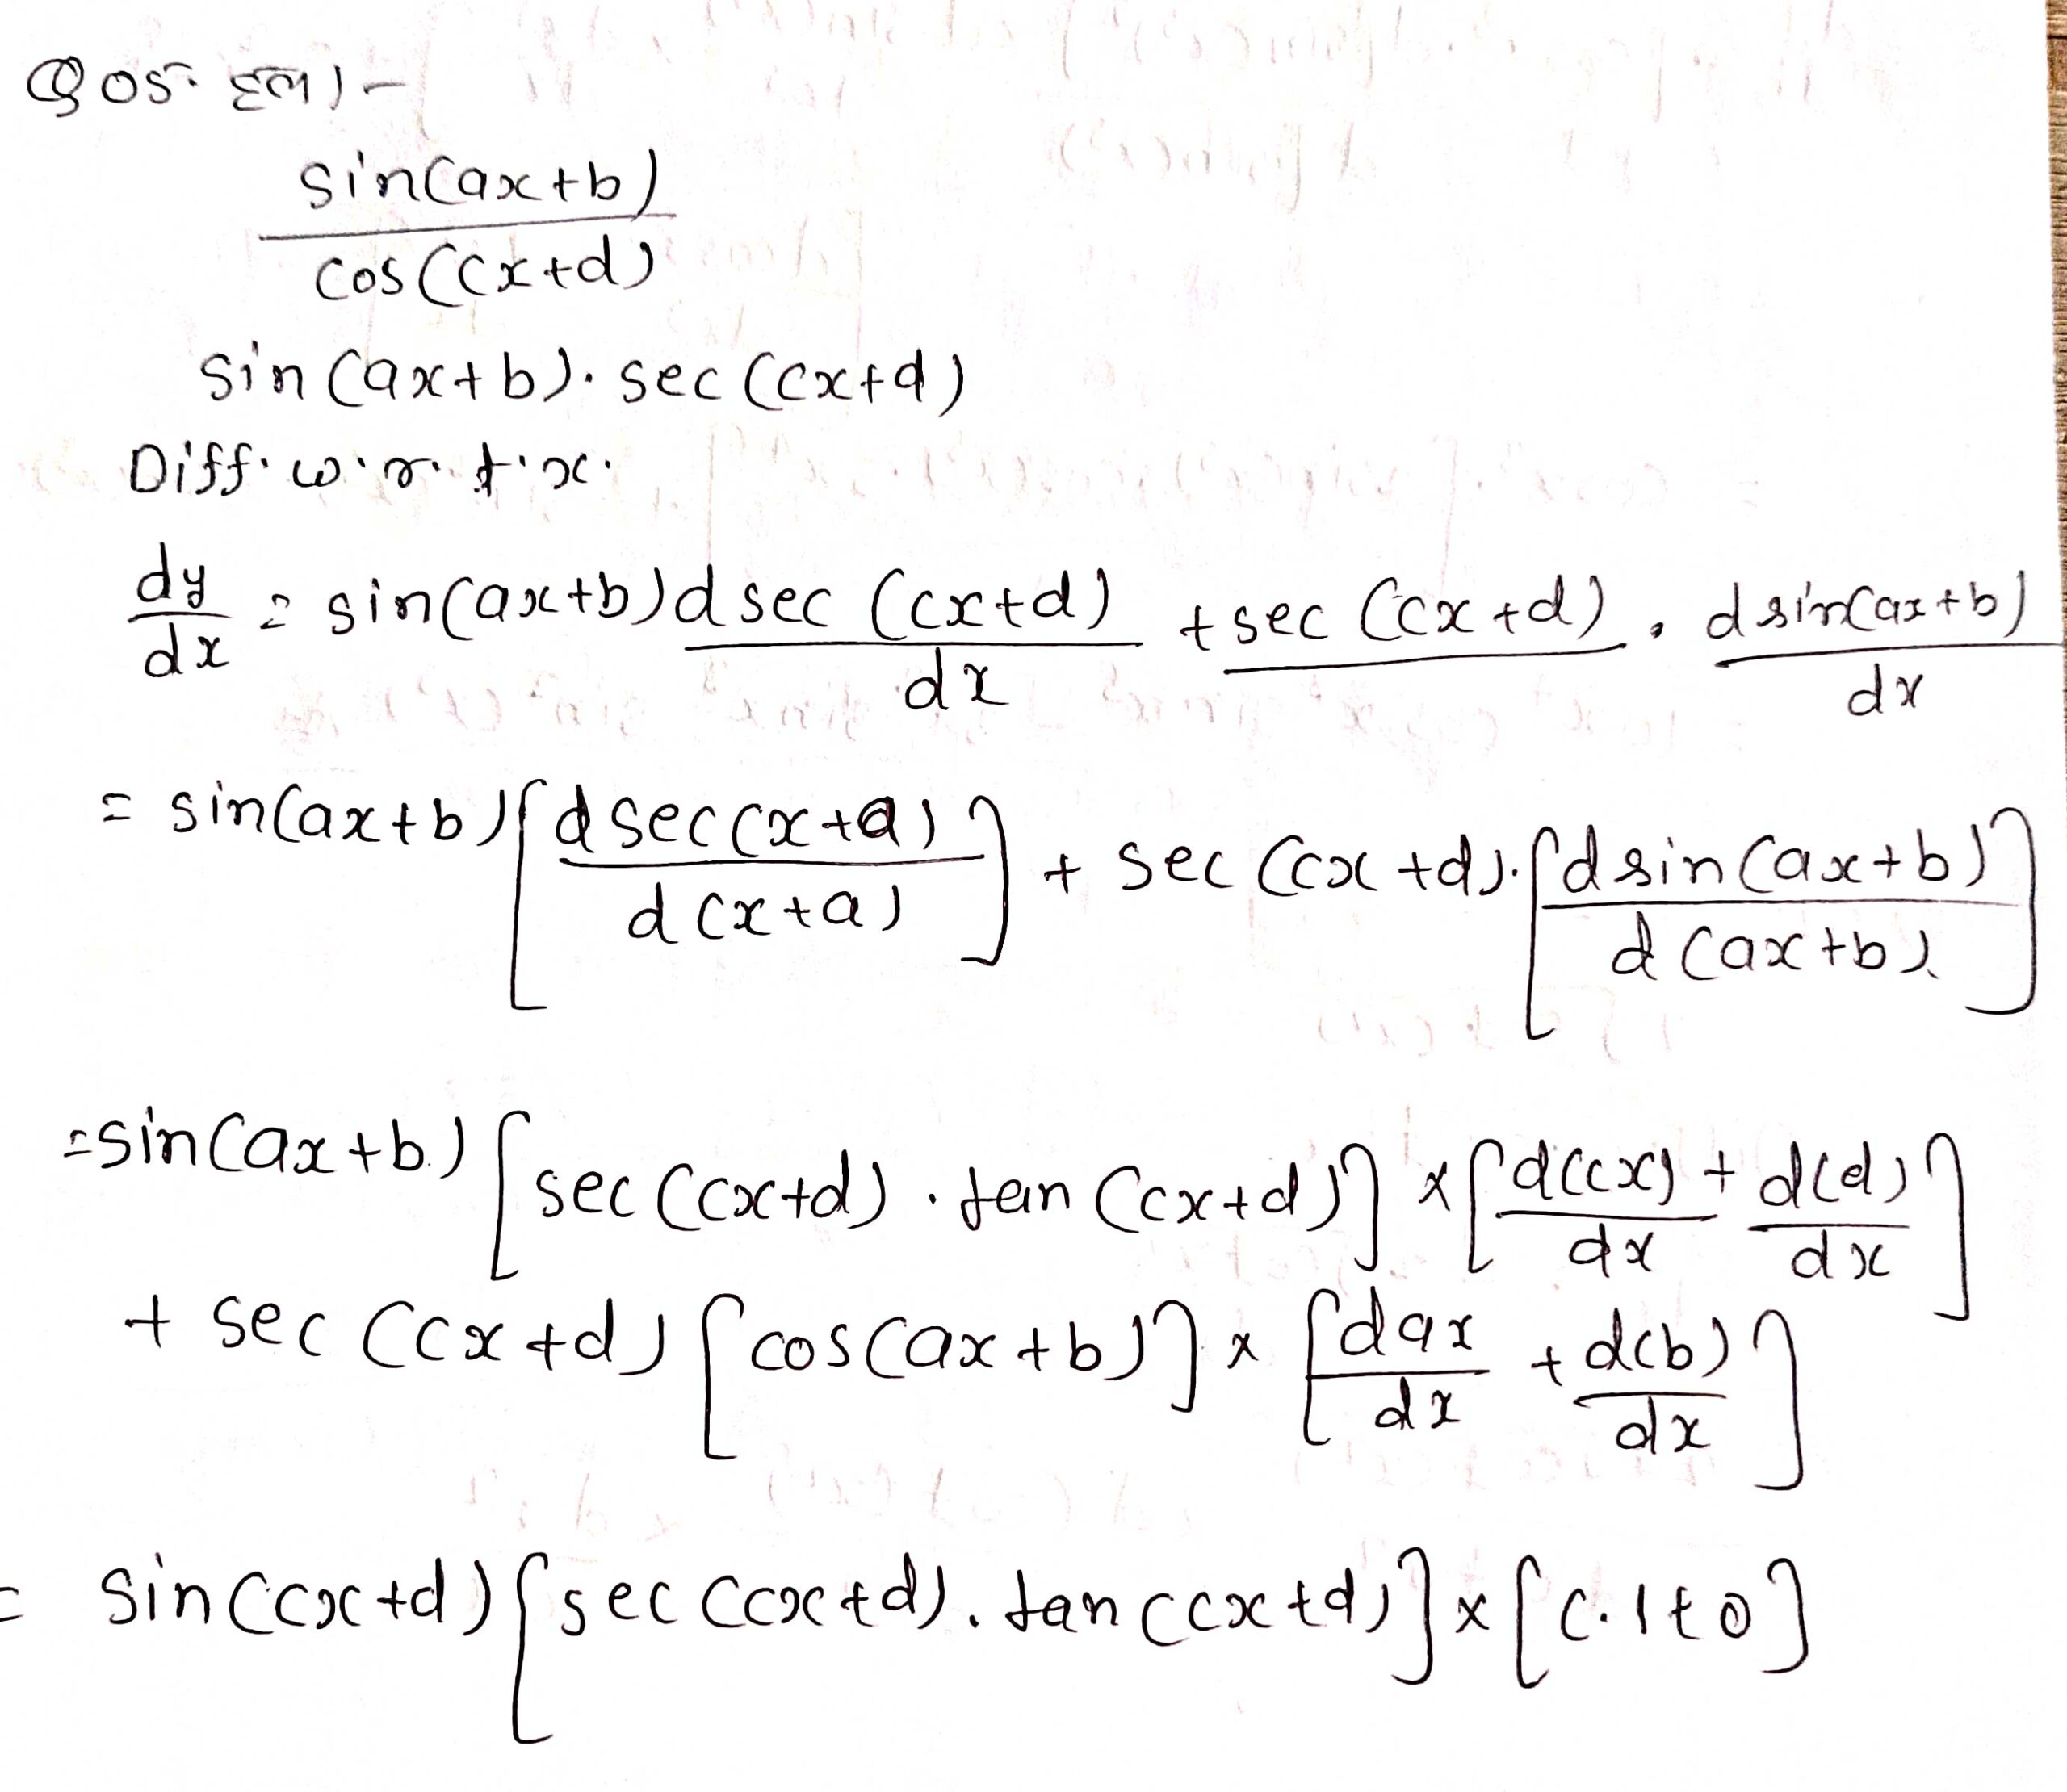 Q 05. हल :-
sin(ax+b)
cos(cx+d)
sin(ax+b). sec(cx+d)
Diff. w.r.t.x.
dy/dx = sin(ax+b) d sec(cx+d)/dx + sec(cx+d). d sin(ax+b)/dx
= sin(ax+b) [d sec(x+a)/d(x+a)] + sec(cx+d).[d sin(ax+b)/d(ax+b)]
= sin(ax+b) [sec(cx+d). tan(cx+d)] x [d(cx)/dx + d(d)/dx]
+ sec(cx+d) [cos(ax+b)] x [dax/dx + d(b)/dx]
= sin(cx+d) [sec(cx+d). tan(cx+d)] x [c.1+0]